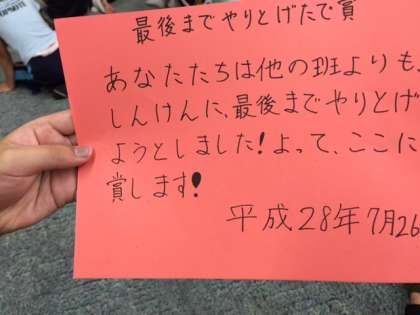 最後までやりとげたで賞
あなたたちは他の班よりも、
しんけんに、最後までやりとげ
ようとしました!よって、ここに
賞します!
平成28年7月26